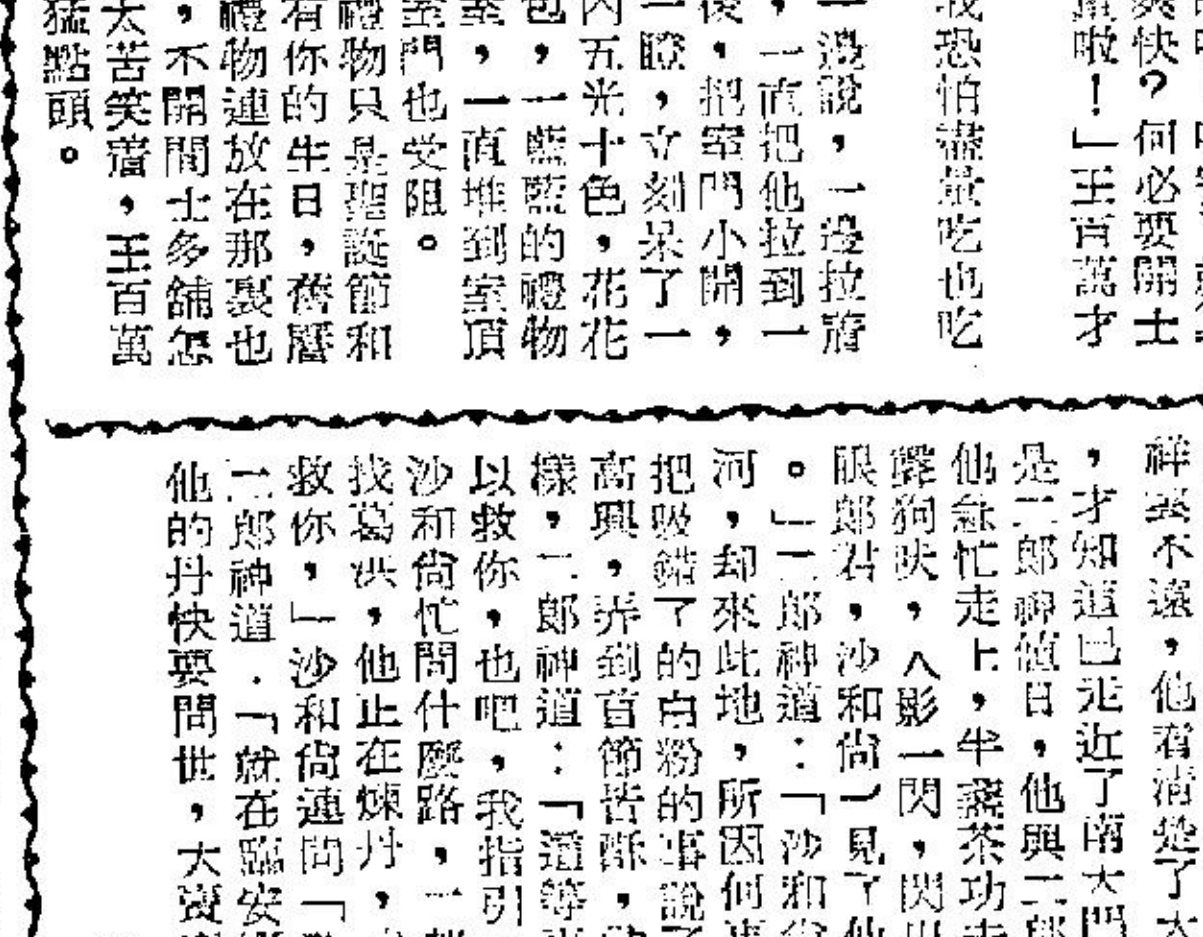 爽快？何必要開士
量啦！」王百萬才
我恐怕盡量吃也吃
一邊說，一邊拉着
，一直把他拉到一
後，把室門小開，
一瞭，立刻呆了一
內五光十色，花花
包，一藍藍的禮物
室，一直堆到室頂
室門也受阻。
禮物只是聖誕節和
有你的生日，舊曆
禮物連放在那裏也
，不開間士多舖怎
太苦笑着，王百萬
猛點頭。
祥雲不遠，他看清楚了
，才知道已走近了南大門
是二郎神值日，他與二郎
他急忙走上，半盞茶功
聲狗吠，人影一閃，閃出
眼郎君，沙和尚一見了他
。」二郎神道：「沙和尚
河，却來此地，所因何事
把吸錯了的白粉的事說了
高興，弄到百節皆酥，
樣，二郎神道：「這等
以救你，也吧，我指引
沙和尚忙問什麼路，一
找葛洪，他正在煉丹，
救你，」沙和尚連問「
二郎神道．「就在臨安
他的丹快要問世，大賣